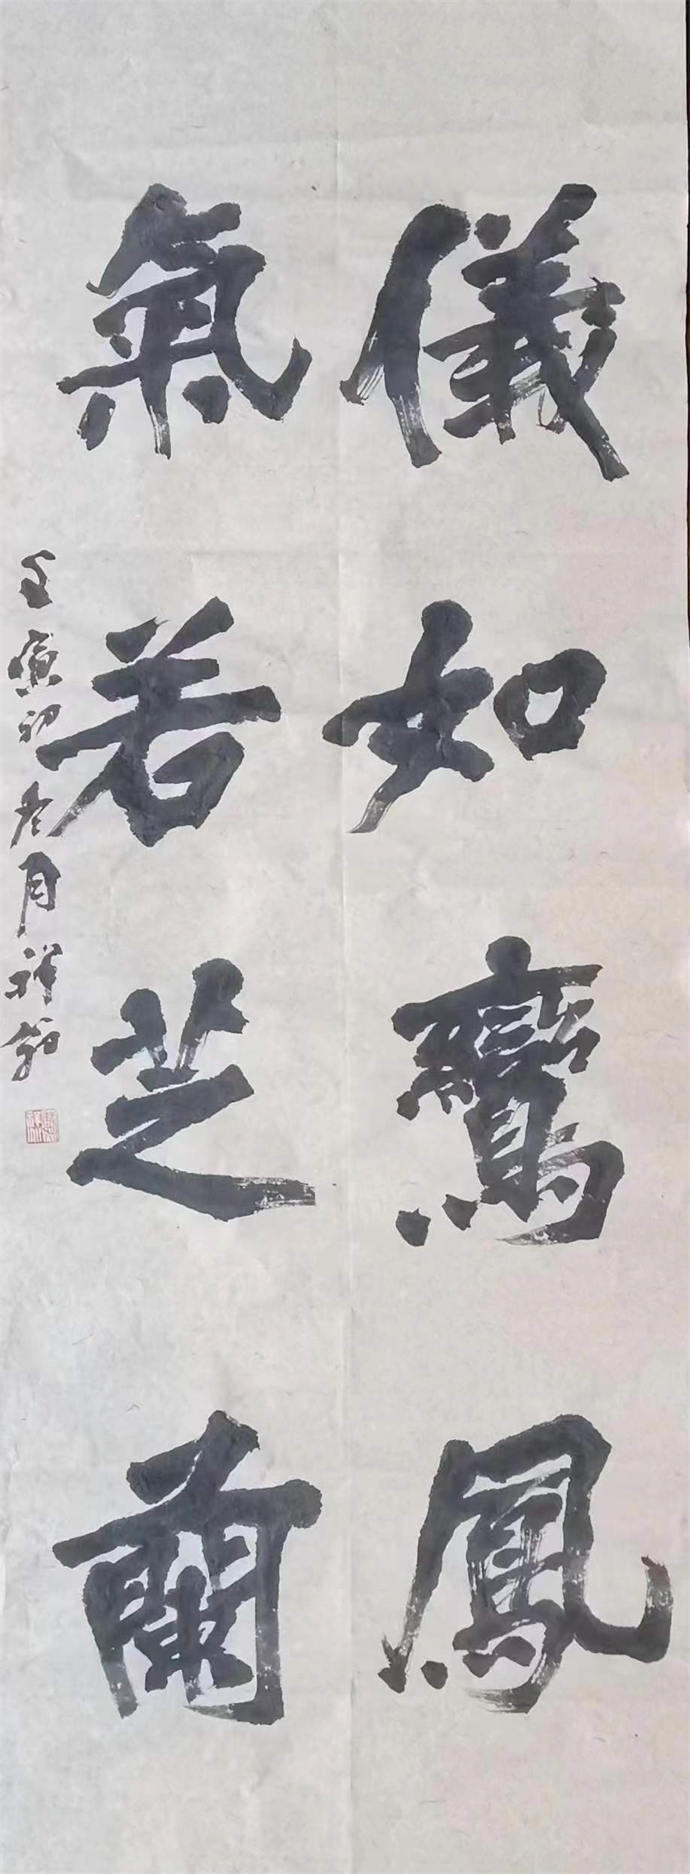 儀如鸞鳳
氣若芝蘭
壬寅初冬月祥